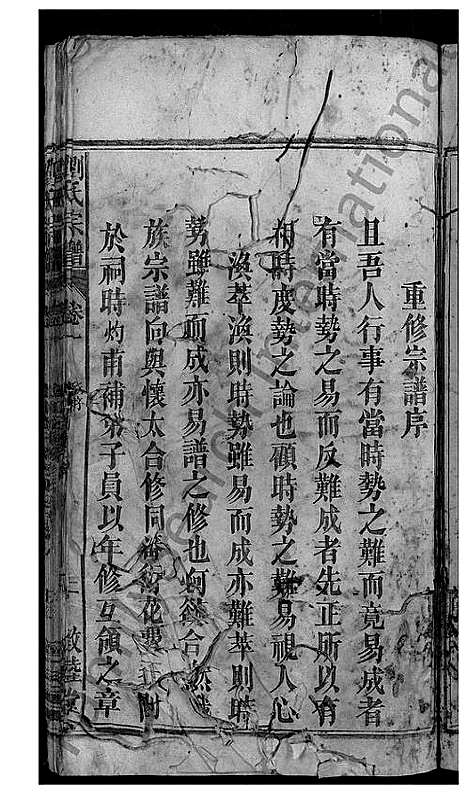 重修宗譜序
且吾人行事有當時勢之難而竟易成者
有當時勢之易而反難成者先正所以有
相時度勢之論也顧時勢之難易視人心
渙萃渙則時勢雖易而成亦難萃則時
勢雖難而成亦易譜之修也何獨不然
族宗譜向與懷太合修同
於祠時灼甫補弟子員以年修互領之章
劉氏宗譜 卷一
敦陸堂